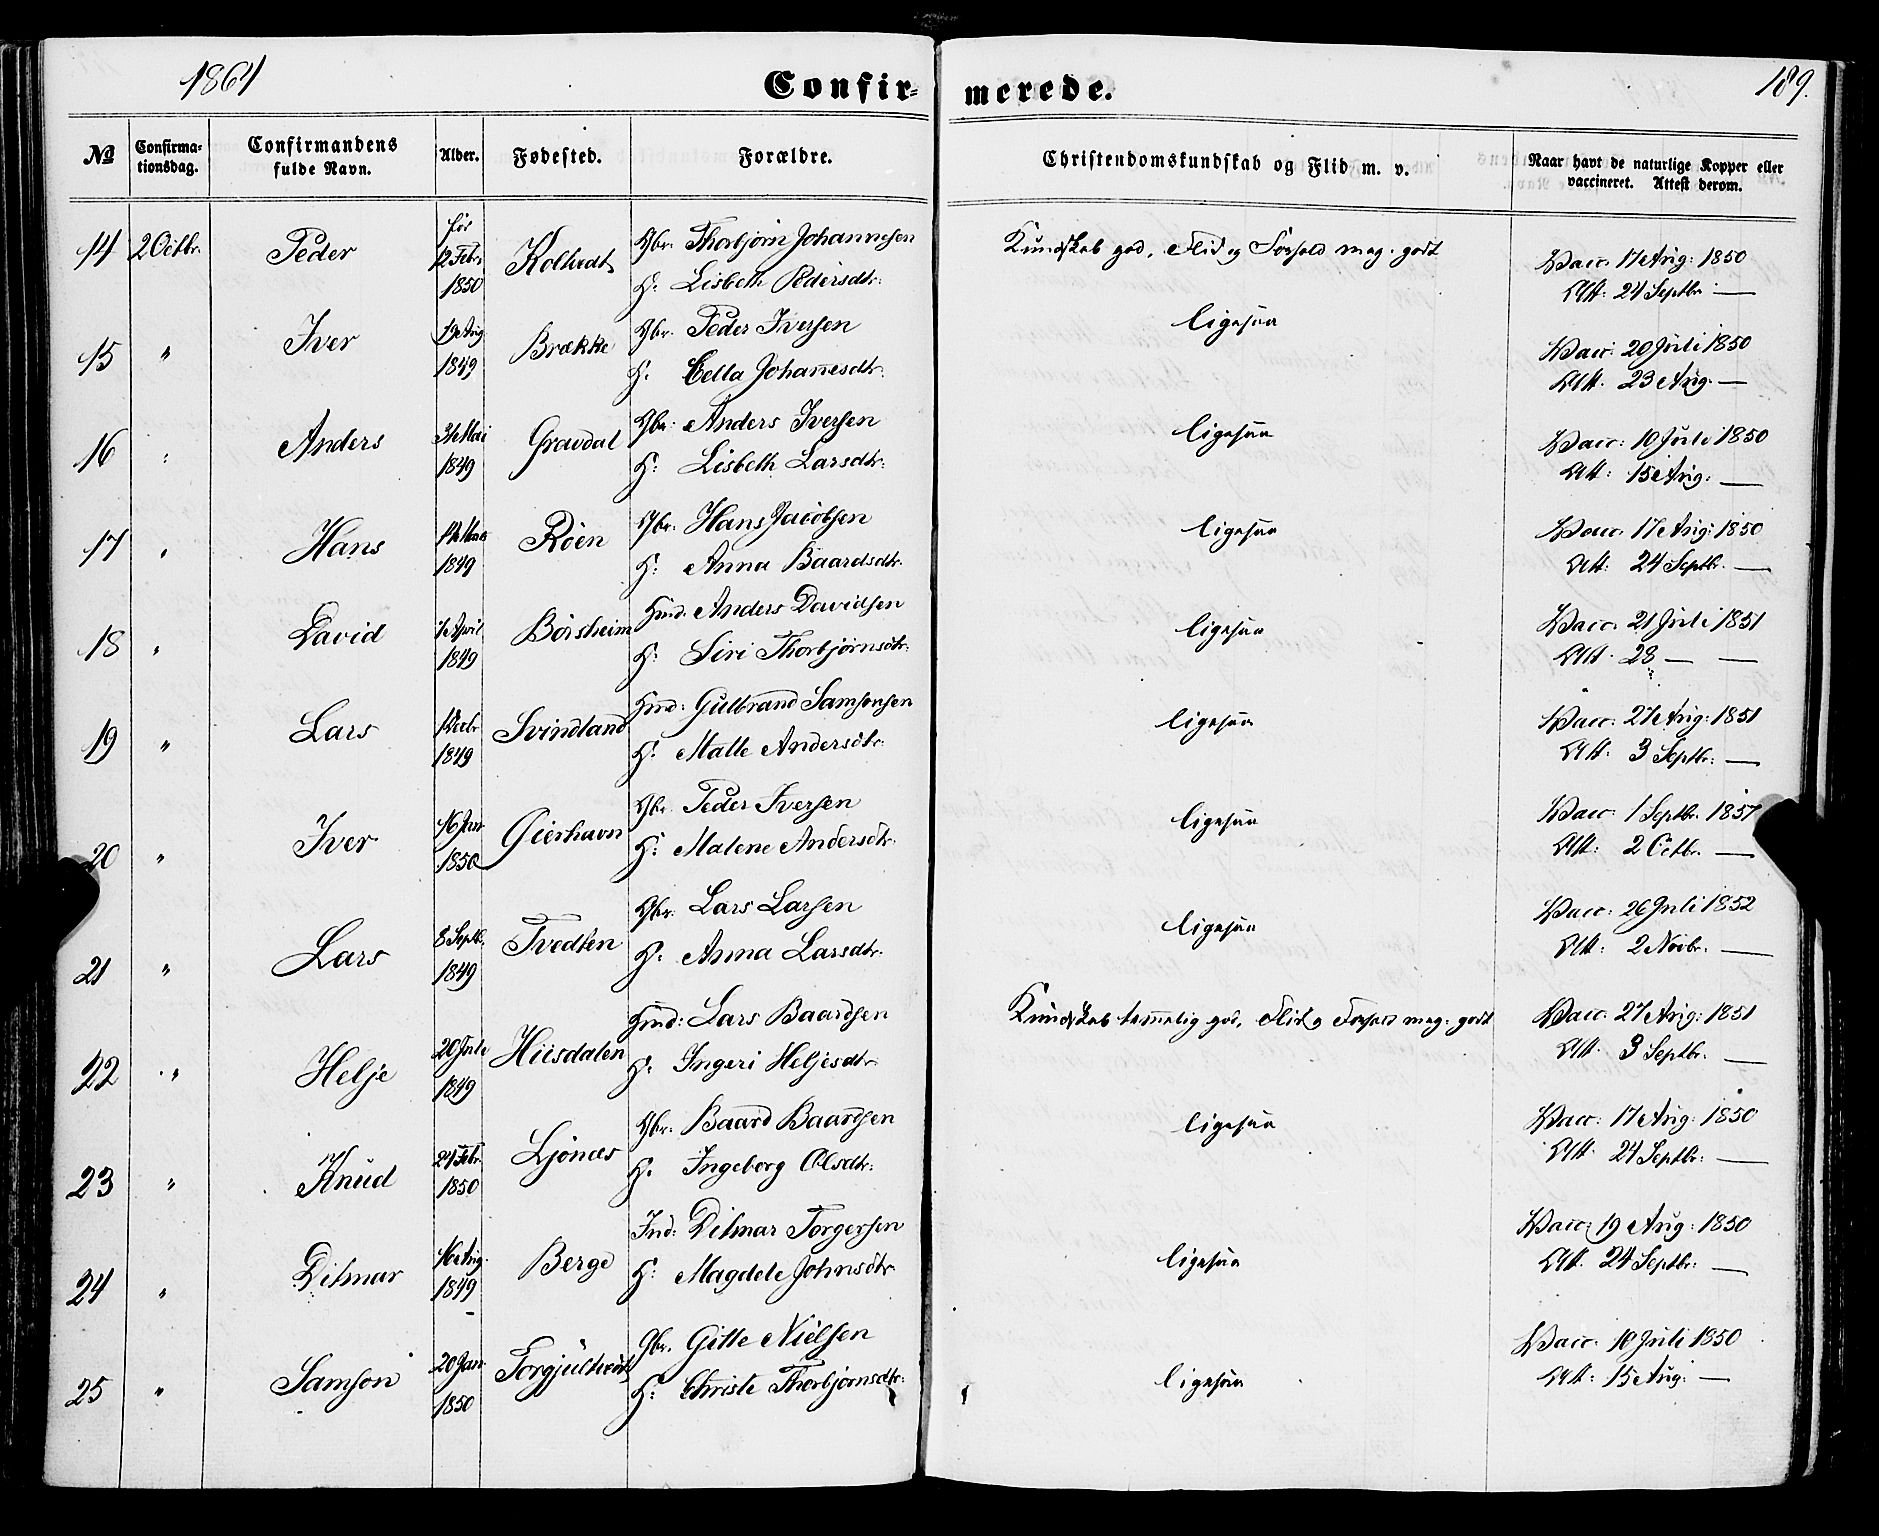 1864
Confir-
merede.
189.
No
Confirma-
tionsdag.
Confirmandens
fulde Navn.
Alder.
Fødested.
Forældre.
Christendomskundskab og Flid m. v.
Naar havt de naturlige Kopper eller
vaccineret. Attest derom.
14 2 Octbr. Peder 12 Febr 1850 Gbr. Thorbjørn Johannesen Kundskab god, Flid og Forhold meg. godt Vacc. 17 Aug: 1850
H. Lisbeth Pedersdtr. Att: 24 Septbr. —
15 " Iver 1849 Brække Gbr. Peder Iversen ligesaa Vacc: 20 Juli 1850
H. Cella Johanesdtr. Att. 23 Aug. —
16 : Anders Mai 1849 Gravdal Gbr: Anders Iversen ligesaa Vacc: 10 Juli 1850
H: Lisbeth Larsdtr. Att: 15 Aug: —
17 " Hans 1849 Røen Gbr: Hans Jacobsen ligesaa Vacc. 17 Aug: 1850
H: Anna Baardsdtr. Att: 24 Septbr. —
18 " David April 1849 Børsheim Hmd. Anders Davidsen ligesaa Vacc. 21 Juli 1851
H. Siri Thorbjørnsdtr. Att. 28 — —
19 " Lars 1849 Svindland Hmd: Gulbrand Samsonsen ligesaa Vacc: 27 Aug: 1851
H. Malle Andersdtr. Att. 3 Septbr: —
20 " Iver 16 Jan 1850 Gierhavn Gbr. Peder Iversen ligesaa Vacc. 1 Septbr. 1857
H: Malene Andersdtr. Att: 2 Octbr. —
21 " Lars 8 Septb. 1849 Tvedten Gbr: Lars Larsen ligesaa Vacc: 26 Juli 1852
H. Anna Larsdtr. Att: 2 Novbr. —
22 " Helje 20 Juli 1849 Huusdalen Hmd: Lars Baardsen Kundskab temelig god, Flid og Forhold meg. godt Vacc. 27 Aug: 1851
H. Ingeri Heljesdtr Att. 3 Septbr. —
23 " Knud 24 Febr. 1850 Ljønæs Gbr. Baard Baardsen ligesaa Vacc: 17 Aug: 1850
H. Ingeborg Olsdtr. Att. 24 Septbr: —
24 " Ditmar 16 Aug. 1849 Berge Ind: Ditmar Torgersen ligesaa Vacc: 19 Aug: 1850
H: Magdele Johnsdtr Att. 24 Septbr: —
25 " Samson 20 Jan. 1850 Gbr. Gitle Nielsen ligesaa Vacc: 10 Juli 1850
H: Christe Thorbjørnsdtr. Att: 15 Aug: —